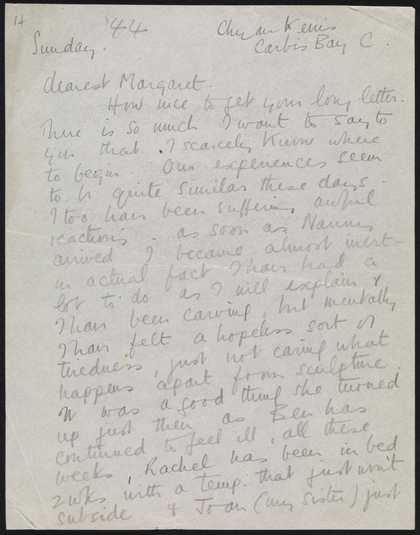 14
Sunday. '44
Chy an Kerris
Carbis Bay C.
dearest Margaret.
How nice to get your long letter.
There is so much I want to say to
you that I scarcely know where
to begin. Our experiences seem
to be quite similar these days -
I too have been suffering awful
reactions - as soon as Nanny
arrived I became almost inert -
in actual fact I have had a
lot to do as I will explain &
I have been carving, but mentally
I have felt a hopeless sort of
tiredness, just not caring what
happens apart from sculpture.
It was a good thing she turned
up just then as Ben has
continued to feel ill, all these
weeks, Rachel has been in bed
2 wks with a temp. that just won't
subside & Joan (my sister) just